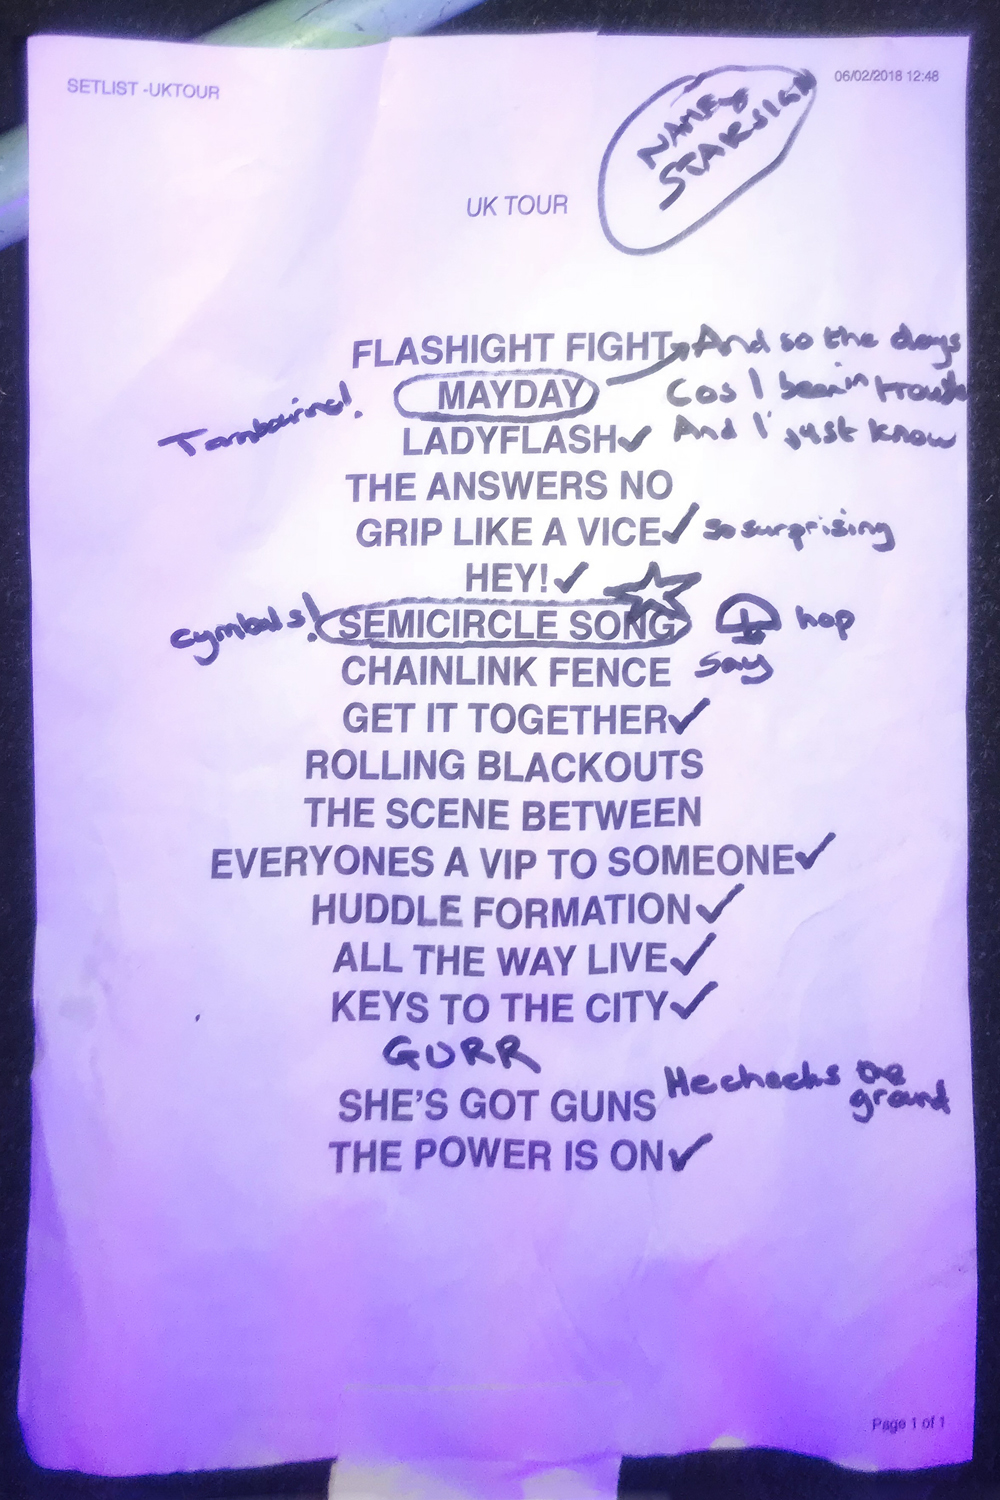 SETLIST -UKTOUR
06/02/2018 12:48
NAME &
STARSIGN
UK TOUR
FLASHIGHT FIGHT And so the days
MAYDAY Cos I been in trouble
Tambourine!
LADYFLASH✓ And I just know
THE ANSWERS NO
GRIP LIKE A VICE✓ so surprising
HEY!✓
cymbals! SEMICIRCLE SONG hop
CHAINLINK FENCE say
GET IT TOGETHER✓
ROLLING BLACKOUTS
THE SCENE BETWEEN
EVERYONES A VIP TO SOMEONE✓
HUDDLE FORMATION✓
ALL THE WAY LIVE✓
KEYS TO THE CITY✓
GURR
SHE'S GOT GUNS He checks the
ground
THE POWER IS ON✓
Page 1 of 1